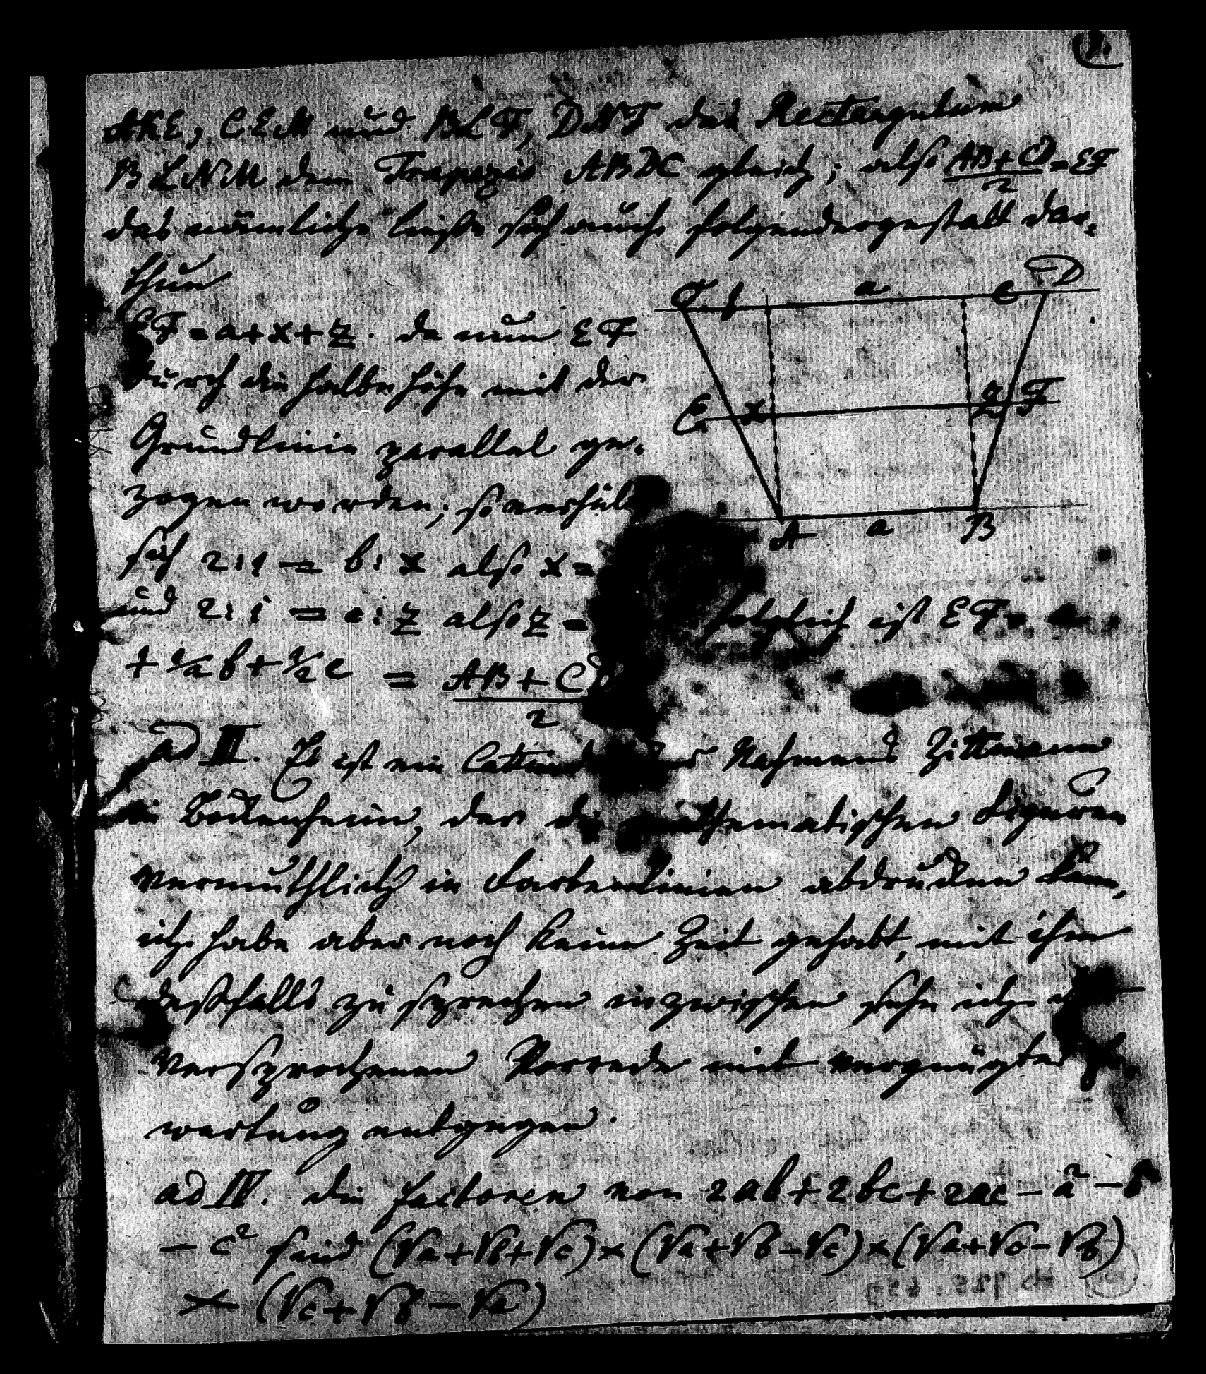 2.
AKE, CEM und BLF, DNF das Rectangulum
BLNM dem Trapezio ABDC gleich; also AB+CD/2 = EF
das nämliche ließe sich auch folgendergestalt dar-
thun
C b a c D
EF = a+x+z. da nun EF
durch die halbe höhe mit der
E x z F
Grundlinie parallel ge-
zogen worden; so verhält
A a B
sich 2:1 = b:x also x =
und 2:1 = c:z also z = folglich ist EF = a
+ 1/2 b + 1/2 c = AB+CD/2
ad II. Es ist ein Nahmens Zittmann
in Bodenheim, der die mathematischen Figuren
vermuthlich in abdrucken kann,
ich habe aber noch keine Zeit gehabt, mit ihm
deßfalls zu sprechen inzwischen sehe ich
versprochenen Vorrede mit vergnügter Er-
wartung entgegen.
ad IV. die factoren von 2ab+2bc+2ac−a²−b²
−c² sind (√a+√b+√c)×(√a+√b−√c)×(√a+√c−√b)
×(√c+√b−√a)